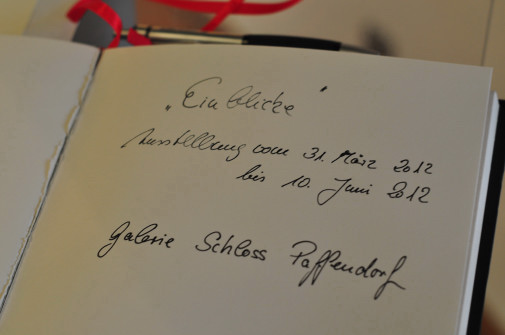 „Einblicke"
Ausstellung vom 31. März 2012
bis 10. Juni 2012
Galerie Schloss Paffendorf